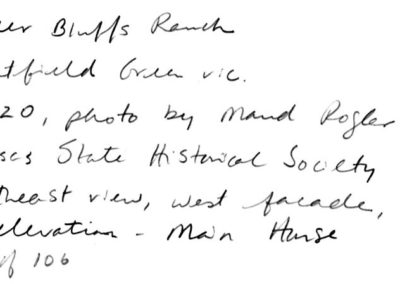 eer Bluffs Ranch
tfield Green vic.
20, photo by Maud Rogler
sas State Historical Society
theast view, west facade,
elevation - Main House
of 106